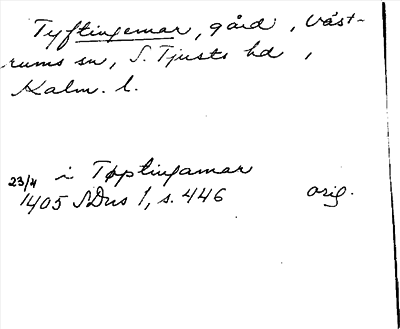 Tyftingemar, gård, Väst-
rums sn, S. Tjusts hd,
Kalm. l.
i Tøptingamar
23/4
1405 SDns 1, s. 446 orig.